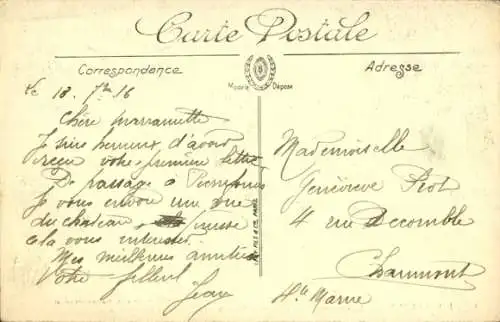 Carte Postale
Correspondance
Adresse
Marque Déposé
Le 18. 7bre 16
Chère marrainette
Je suis heureux d'avoir
reçu votre première lettre
De passage à Pierrefonds
Je vous envoie une vue
du chateau, puisse
cela vous interesser.
Mes meilleures amitiés
Votre filleul
Jean
Mademoiselle
Geneviève
4 rue Decomble
Chaumont
Hte Marne